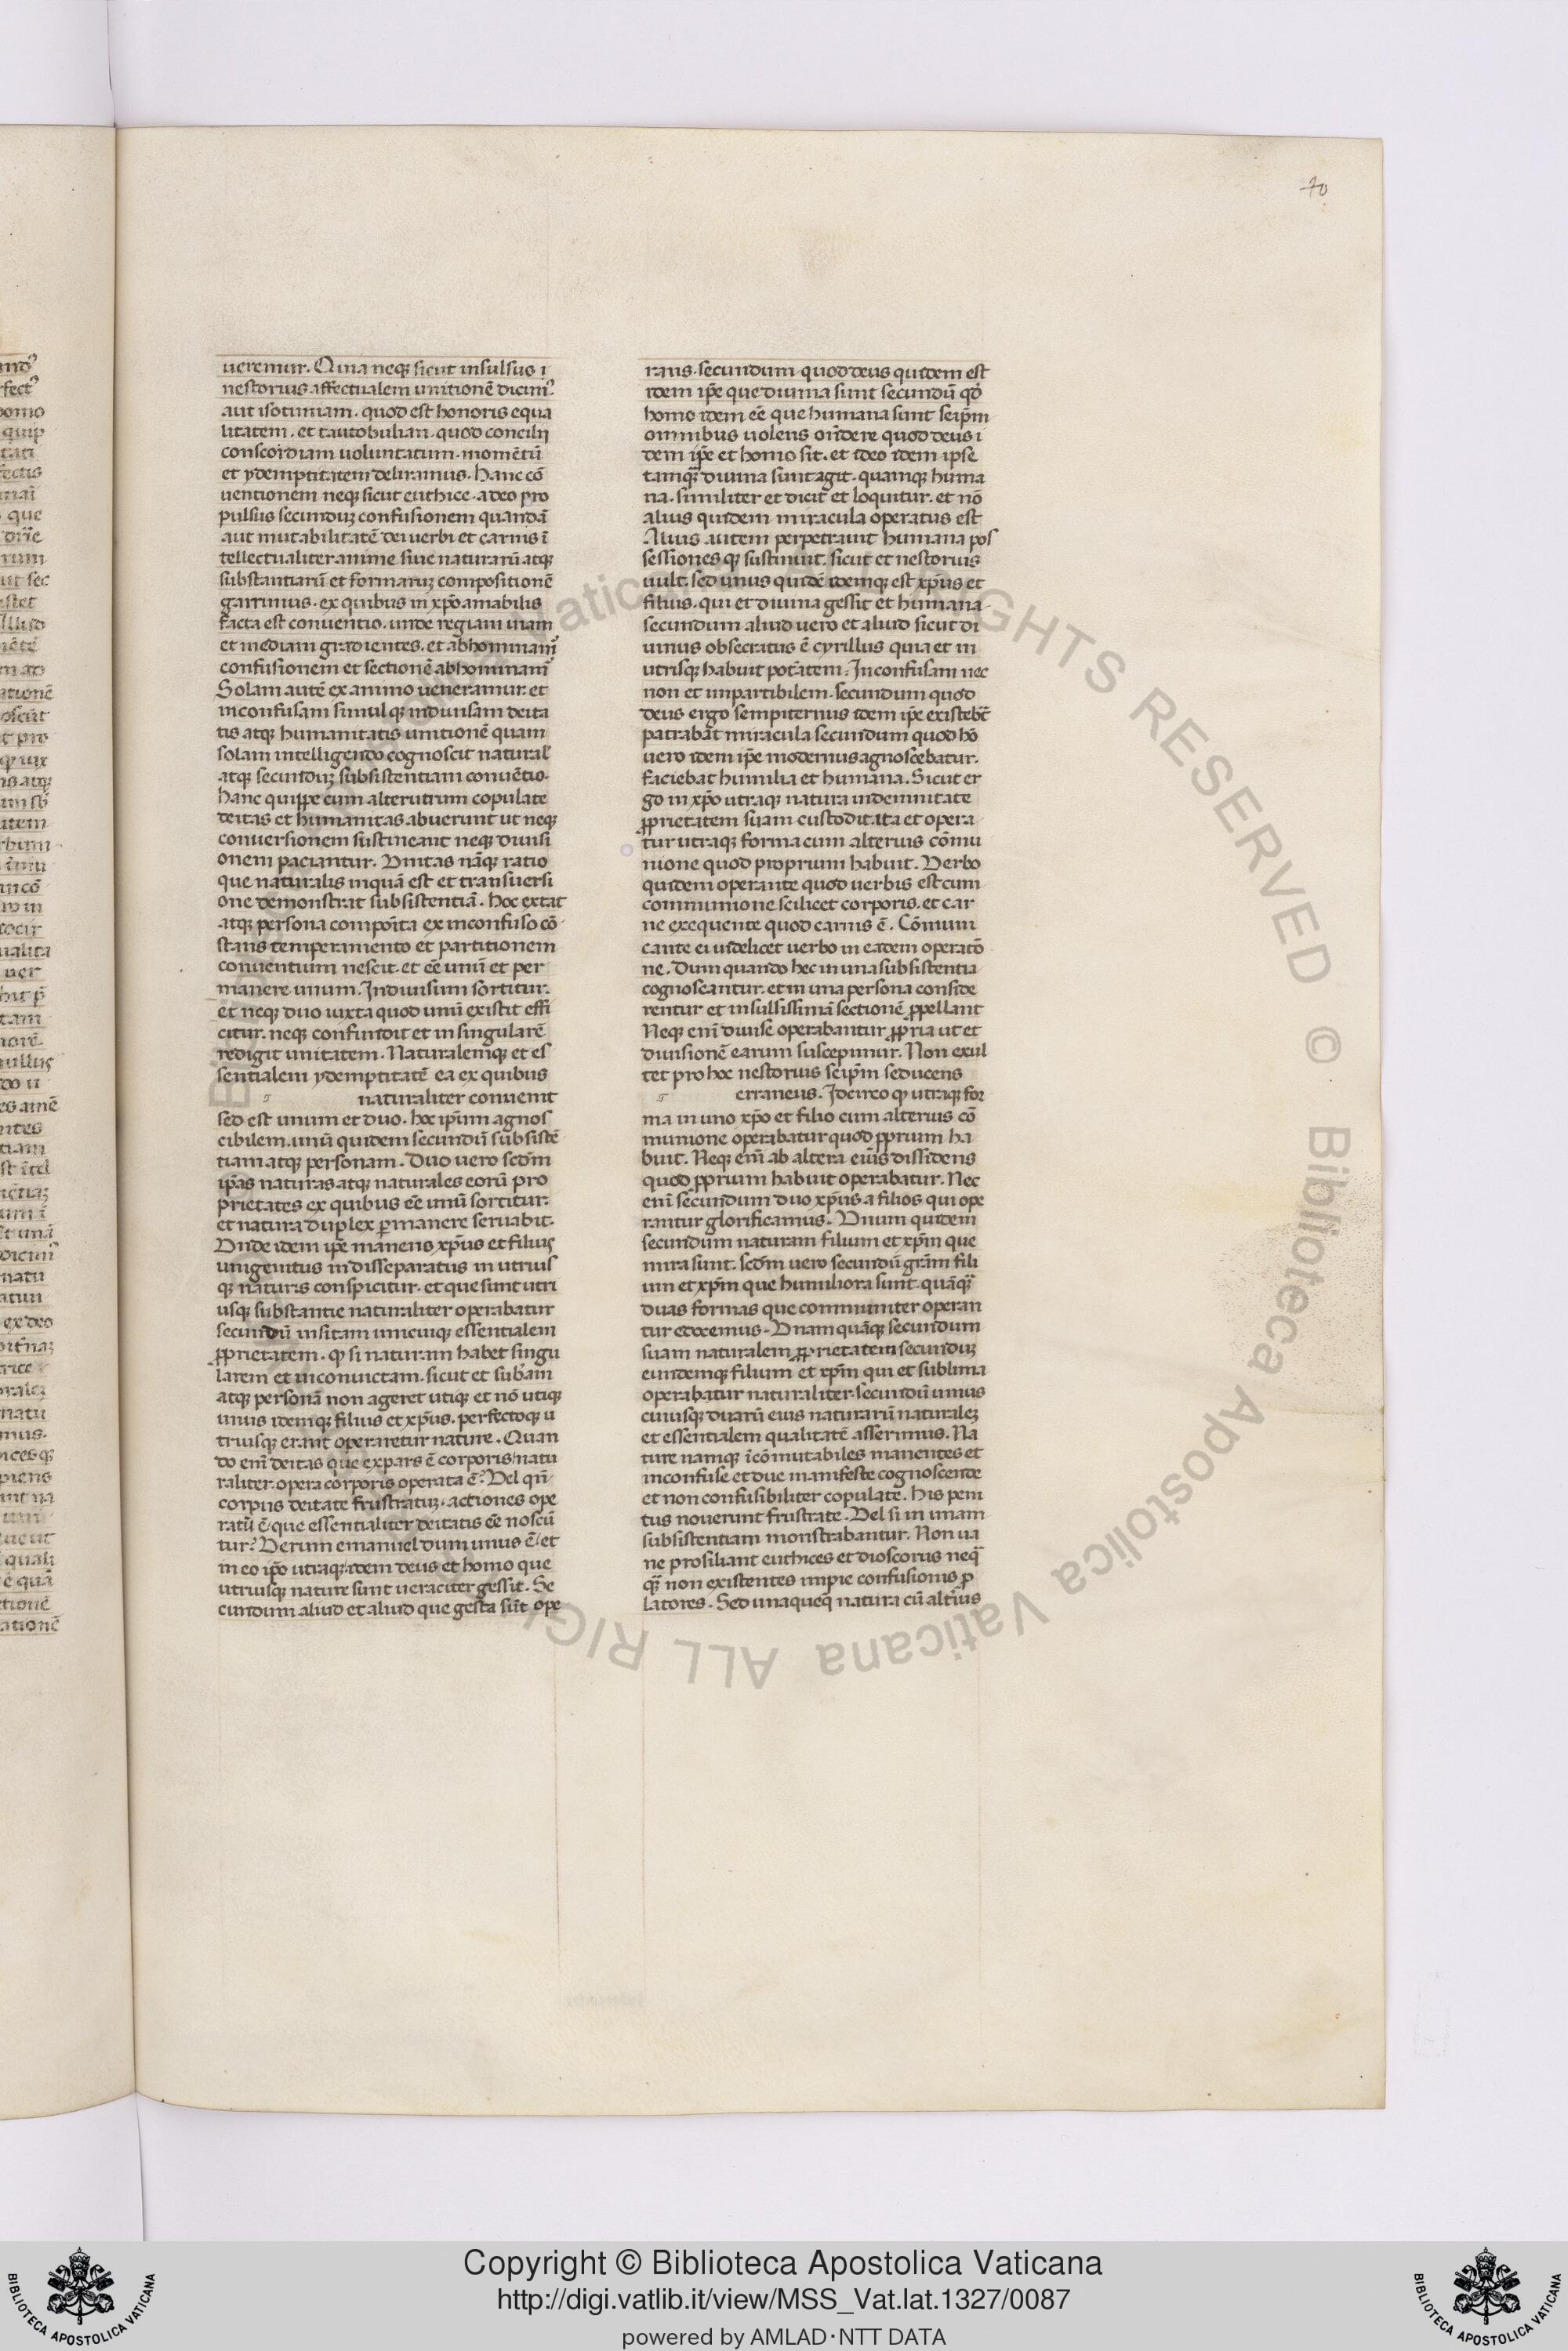 70
ueremur. Quia neqꝫ sicut insulsus i
nestorius affectualem unitionē dicimꝰ
aut isotimiam. quod est honoris equa
litatem. et tautobulian. quod concilii
conscordiam uoluntatum. momētū
et ydemptitatem deliramus. Hanc cō
uentionem neqꝫ sicut euthice. adeo pro
pulsus secunduꝫ confusionem quandā
aut mutabilitatē dei uerbi et carnis ī
tellectualiter anime siue naturarū atqꝫ
substantiarū et formaruꝫ compositionē
garrimus. ex quibus in xp̄o amabilis
facta est conuentio. unde regiam uiam
et mediam gradientes. et abhominamꝰ
confusionem et sectionē abhominamꝰ
Solam autē ex animo ueneramur. et
inconfusam simul qꝫ indiuisam deita
tis atqꝫ humanitatis unitionē quam
solam intelligendo cognoscit natural
atqꝫ secunduꝫ subsistentiam conuētio.
hanc quippe cum alterutrum copulate
deitas et humanitas abuerunt ut neqꝫ
conuersionem sustineant neqꝫ diuisi
onem paciantur. Unitas nāqꝫ ratio
que naturalis inquā est et transuersi
one demonstrat subsistentiā. hoc extat
atqꝫ persona compoīta ex inconfuso cō
stans temperamento et partitionem
conuentium nescit. et eē unū et per
manere unum. Indiuisum sortitur.
et neqꝫ duo iuxta quod unū existit effi
citur. neqꝫ confundit et in singularē
redigit unitatem. Naturalemqꝫ et es
sentialem ydemptitatē ea ex quibus
naturaliter conuenit
sed est unum et duo. hoc ip̄um agnos
cibilem. unū quidem secundū subsistē
tiam atqꝫ personam. Duo uero scdm̄
ip̄as naturas atqꝫ naturales eorū pro
prietates ex quibus eē unū sortitur.
et natura duplex ꝑmanere seruabit.
Unde idem ip̄e manens xp̄us et filius
unigenitus indisseparatus in utrius
qꝫ naturis conspicitur. et que sunt utri
usqꝫ substantie naturaliter operabatur
secundū insitam unicuiqꝫ essentialem
ꝓprietatem. qꝫ si naturam habet singu
larem et inconuictam. sicut et subāam
atqꝫ personā non ageret utiqꝫ et nō utiqꝫ
unus idemqꝫ filius et xp̄us. perfectoqꝫ u
triusqꝫ erant operaretur nature. Quan
do enī deitas que expars ē corporis natu
raliter opera corporis operata ē? Uel qn̄
corpus deitate frustratuꝫ. actiones ope
ratū ē que essentialiter deitatis eē noscū
tur? Uerum emanuel dum unus ē et
in eo ip̄o utraqꝫ idem deus et homo que
utriusqꝫ nature sunt ueraciter gessit. Se
cundum aliud et aliud que gesta sūt ope
rans. secundum quod deus quidem est
idem ip̄e que diuina sunt secundū qd̄
homo idem eē que humana sunt seip̄m
omnibus uolens on̄dere quod deus i
dem ip̄e et homo sit. et ideo idem ipse
tamqꝫ diuina sunt agit. quamqꝫ huma
na. similiter et dicit et loquitur. et nō
alius quidem miracula operatus est
Alius autem perpetrauit humana pos
sessiones qꝫ sustinuit. sicut et nestorius
uult. sed unus quidē idemqꝫ est xp̄us et
filius. qui et diuina gessit et humana
secundum aliud uero et aliud sicut di
uinus obsecratus ē cyrillus quia et in
utrisqꝫ habuit pot̄atem. Inconfusam nec
non et impartibilem. secundum quod
deus ergo sempiternus idem ip̄e existeb̄t
patrabāt miracula secundum quod hō
uero idem ip̄e modernus agnoscebatur.
faciebat humilia et humana. Sicut er
go in xp̄o utraqꝫ natura indemnitate
ꝓprietatem suam custodit. ita et opera
tur utraqꝫ forma cum alterius cōmu
nione quod proprium habuit. Uerbo
quidem operante quod uerbis est cum
communione scilicet corporis. et car
ne exequente quod carnis ē. Cōmuni
cante ei uidelicet uerbo in eadem operatō
ne. Dum quando hec in una subsistentia
cognoscantur. et in una persona conside
rentur et insulsissimā sectionē ꝓpellant
Neqꝫ enī diuise operabantur ꝓpria ut et
diuisionē earum suscepimur. Non exul
tet pro hoc nestorius seip̄m seducens
erraneus. Idcirco qꝫ utraqꝫ for
ma in uno xp̄o et filio cum alterius cō
munione operabatur quod ꝓprium ha
buit. Neqꝫ enī ab altera eius dissidens
quod ꝓprium habuit operabatur. Nec
enī secundum duo xp̄us a filios qui ope
rantur glorificamus. Unum quidem
secundum naturam filium et xp̄m que
mira sunt. scdm̄ uero secundū grām fili
um et xp̄m que humiliora sunt. quāqꝫ
duas formas que communiter operan
tur edocemus. Unam quāqꝫ secundum
suam naturalem ꝓprietatem secunduꝫ
eundemqꝫ filium et xp̄m qui et sublima
operabatur naturaliter. secundū unius
cuiusqꝫ duarū eius naturarū naturaleꝫ
et essentialem qualitatē asserimus. Na
ture namqꝫ īcōmutabiles manentes et
inconfuse et due manifeste cognoscende
et non confusibiliter copulate. His peni
tus nouerunt frustrate. Uel si in unam
subsistentiam monstrabantur. Non ua
ne prosiliant euthices et dioscorus neqꝫ
qꝫ non existentes impie confusionis ꝓ
latores. Sed unaqueqꝫ natura cū altīus
Copyright © Biblioteca Apostolica Vaticana
http://digi.vatlib.it/view/MSS_Vat.lat.1327/0087
powered by AMLAD·NTT DATA
BIBLIOTECA APOSTOLICA VATICANA
BIBLIOTECA APOSTOLICA VATICANA
© Biblioteca Apostolica Vaticana ALL RIGHTS RESERVED